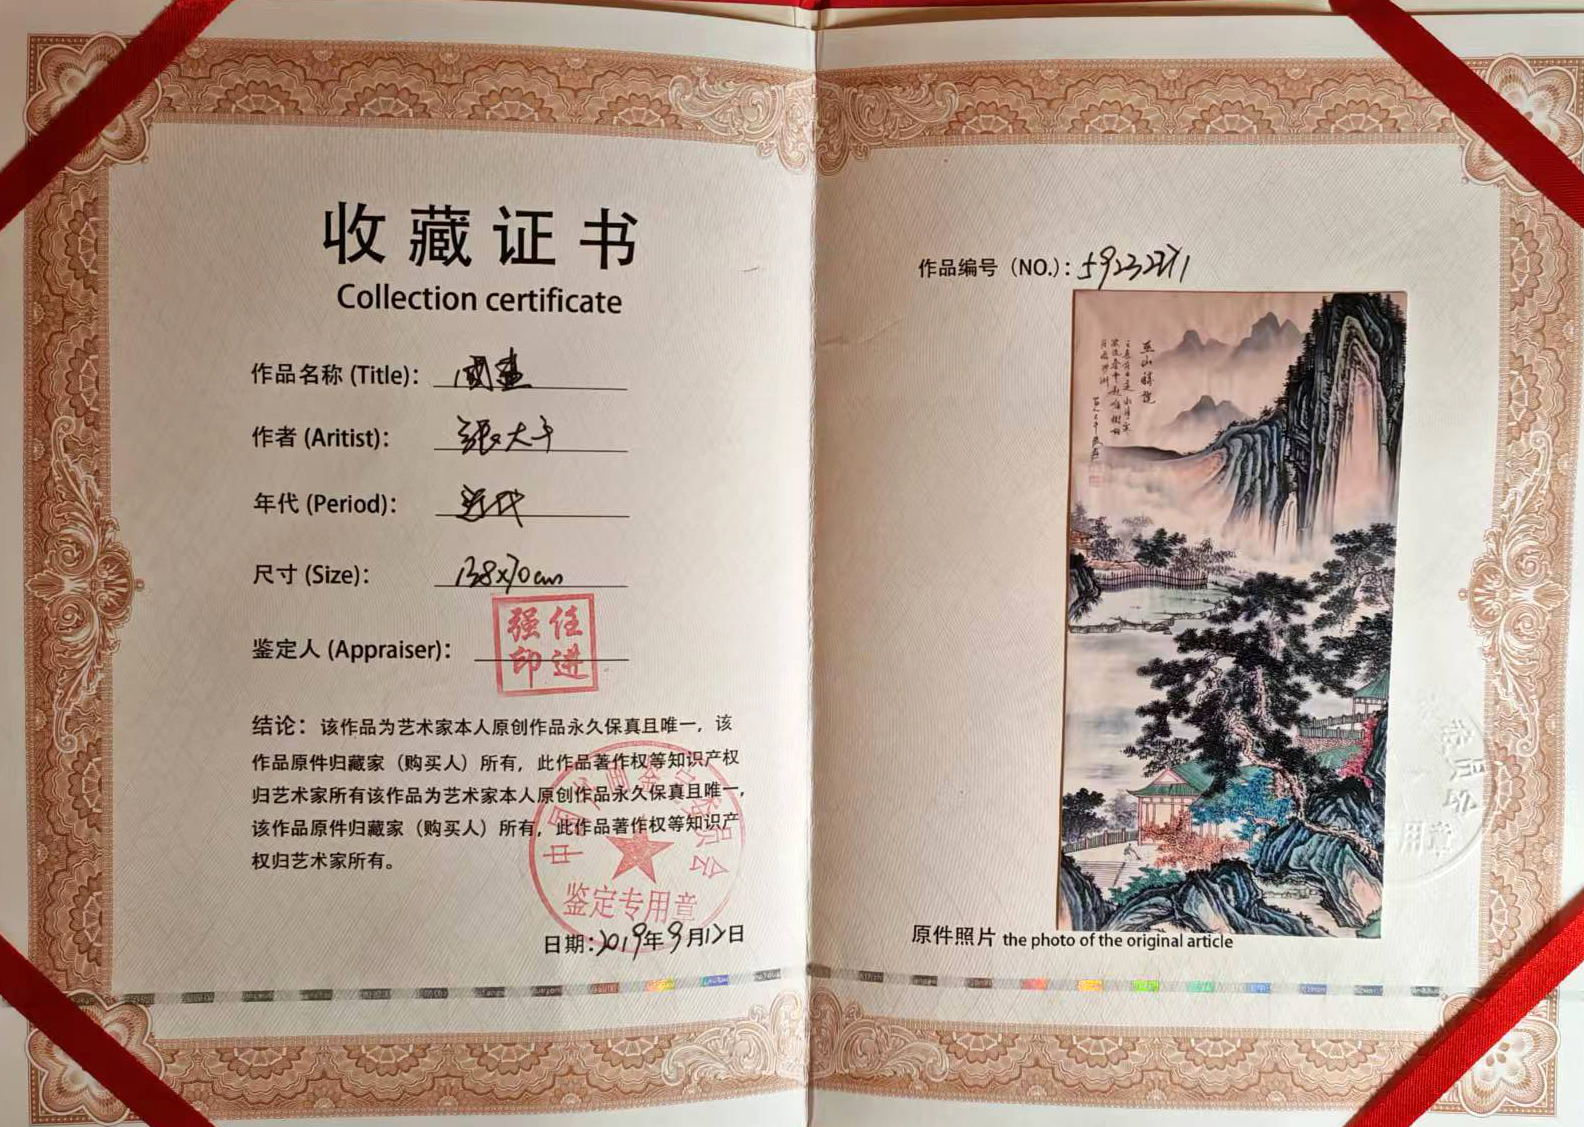 收藏证书
Collection certificate
作品名称 (Title): 國畫
作者 (Aritist): 張大千
年代 (Period): 近代
尺寸 (Size): 138x70cm
鉴定人 (Appraiser):
任进强印
结论：该作品为艺术家本人原创作品永久保真且唯一，该
作品原件归藏家（购买人）所有，此作品著作权等知识产权
归艺术家所有该作品为艺术家本人原创作品永久保真且唯一，
该作品原件归藏家（购买人）所有，此作品著作权等知识产
权归艺术家所有。
鉴定专用章
日期：2019年9月12日
作品编号（NO.）：
巫山
原件照片 the photo of the original article
委员会
用章